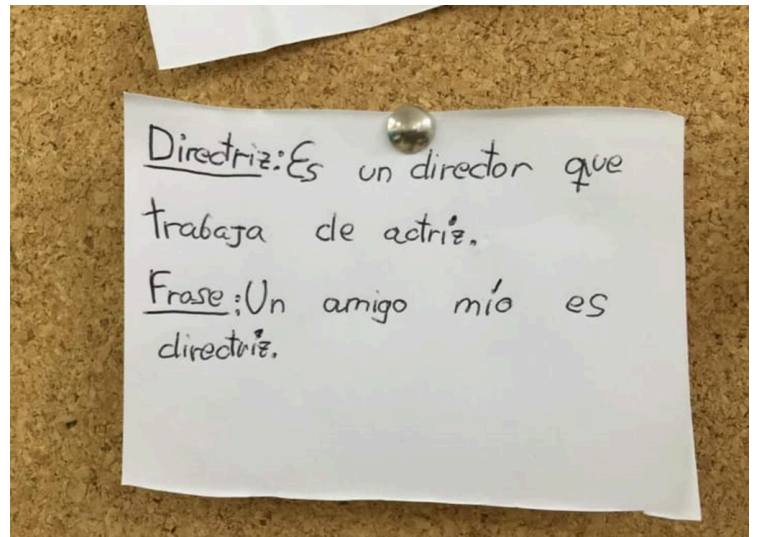 Directriz: Es un director que
trabaja de actriz.
Frase: Un amigo mío es
directriz.